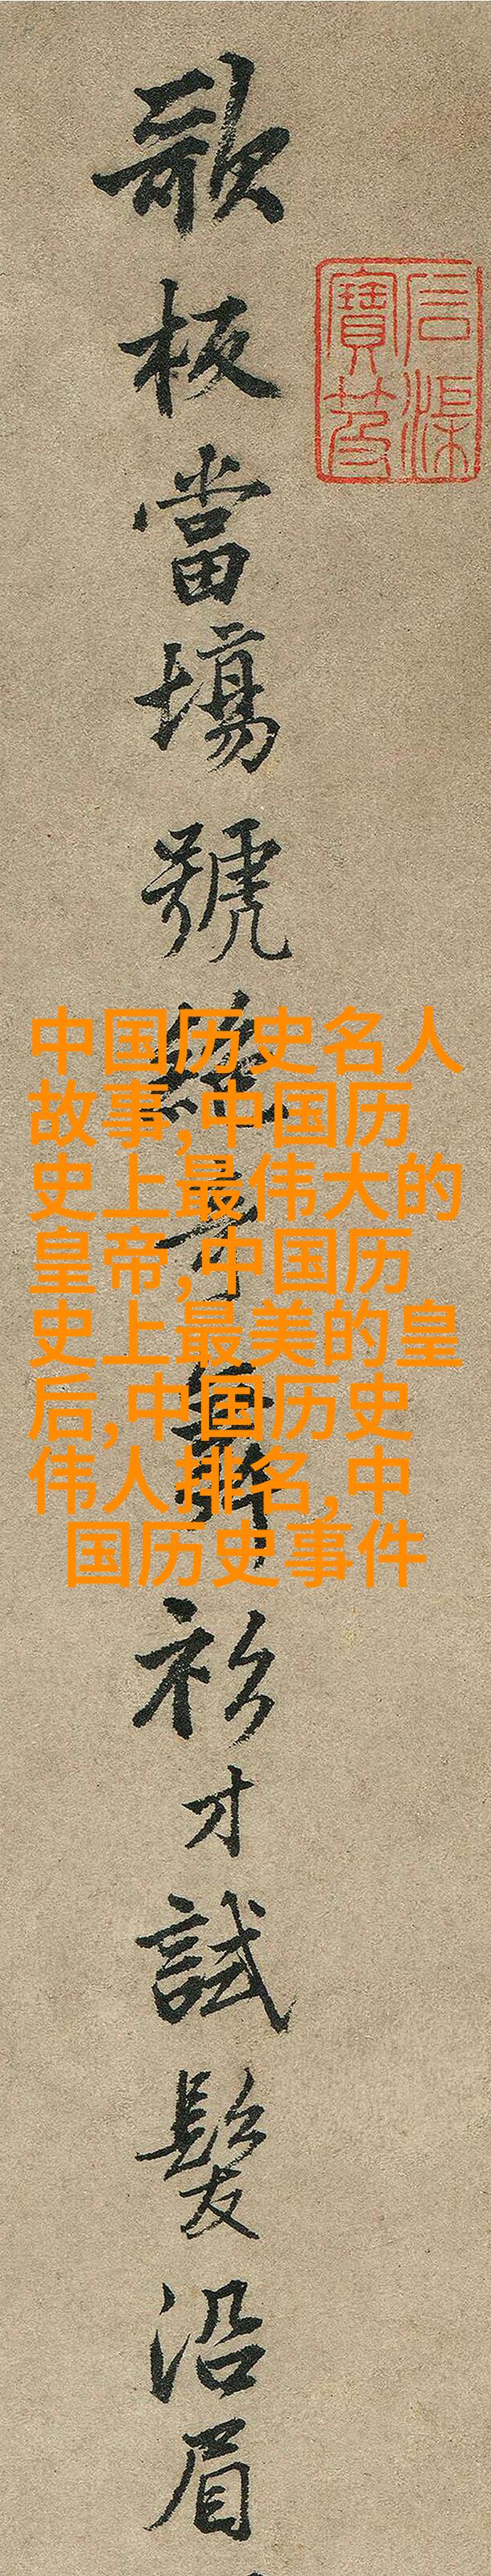 歌板當場號絕奇舞衫才試髮沿眉
石渠
寶笈
中国历史名人
故事,中国历
史上最伟大的
皇帝,中国历
史上最美的皇
后,中国历史
伟人排名,中
国历史事件